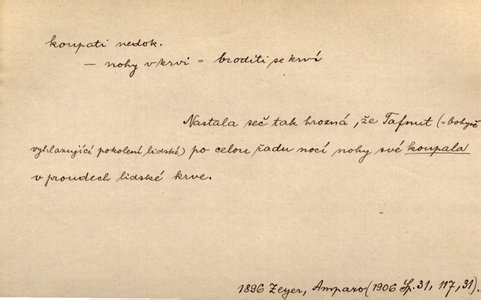 koupati nedok.
— nohy v krvi = broditi se krví
Nastala seč tak hrozná, že Tafnut (= bohyně
vyhlazující pokolení lidské) po celou řadu nocí nohy své koupala
v proudech lidské krve.
1896 Zeyer, Amparo (1906 Sp. 31, 117, 31).